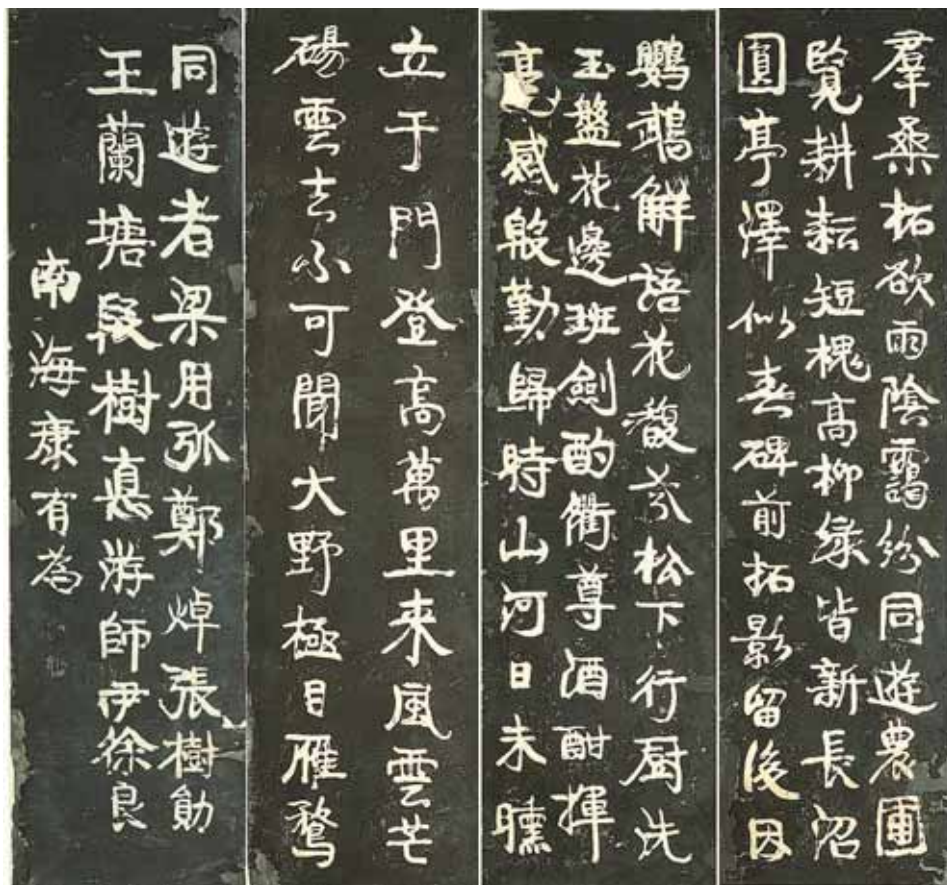 羣桑柘欲雨陰靄紛同遊農圃
覽耕耘短槐高柳綠皆新長沼
圓亭澤似春碑前拓影留後因
鸚鵡解語花馥芬松下行厨洗
玉盤花邊班劍酌衢尊酒酣揮
毫感殷勤歸時山河日未曛
立于門登高萬里来風雲芒
碭雲去不可聞大野極目雁鶩
同遊者梁用弧鄭焯張樹勛
王蘭塘段樹惪游師尹徐良
南海康有為